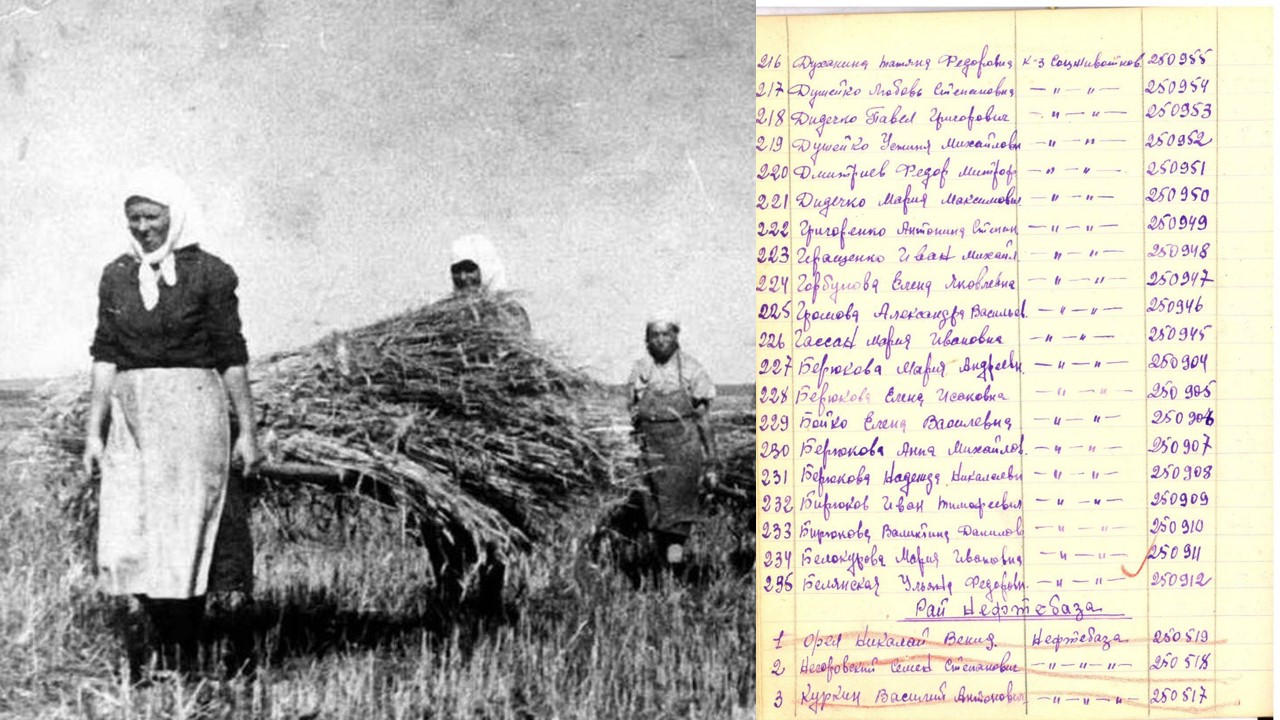 216 Духанина Татяна Федоровна к-з Соцживотнов. 250955
217 Душейко Любовь Степановна — " — " — 250954
218 Дидечко Павел Григорович — " — " — 250953
219 Душейко Устиня Михайловн — " — " — 250952
220 Дмитриев Федор Митроф — " — " — 250951
221 Дидечко Мария Максимовн — " — " — 250950
222 Григоренко Антонина Степан — " — " — 250949
223 Геращенко Иван Михайл — " — " — 250948
224 Горбунова Елена Яковлевна — " — " — 250947
225 Громова Александра Васильев. — " — " — 250946
226 Гассан Мария Ивановна — " — " — 250945
227 Берюкова Мария Андреевн. — " — " — 250904
228 Берюкова Елена Исаковна — " — " — 250905
229 Бойко Елена Василевна — " — " — 250906
230 Берюкова Анна Михайлов. — " — " — 250907
231 Берюкова Надежда Николаевн — " — " — 250908
232 Бирюков Иван Тимофеевич — " — " — 250909
233 Бирюкова Валинтина Данилов — " — " — 250910
234 Белокурова Мария Ивановна — " — " — 250911
235 Белянская Ульяна Федоровн. — " — " — 250912
Рай Нефтебаза
1 Орел Николай Нефтебаза 250519
2 Семен Степанович — " — " — " — 250518
3 Куркин Василий Антонович — " — " — " — 250517